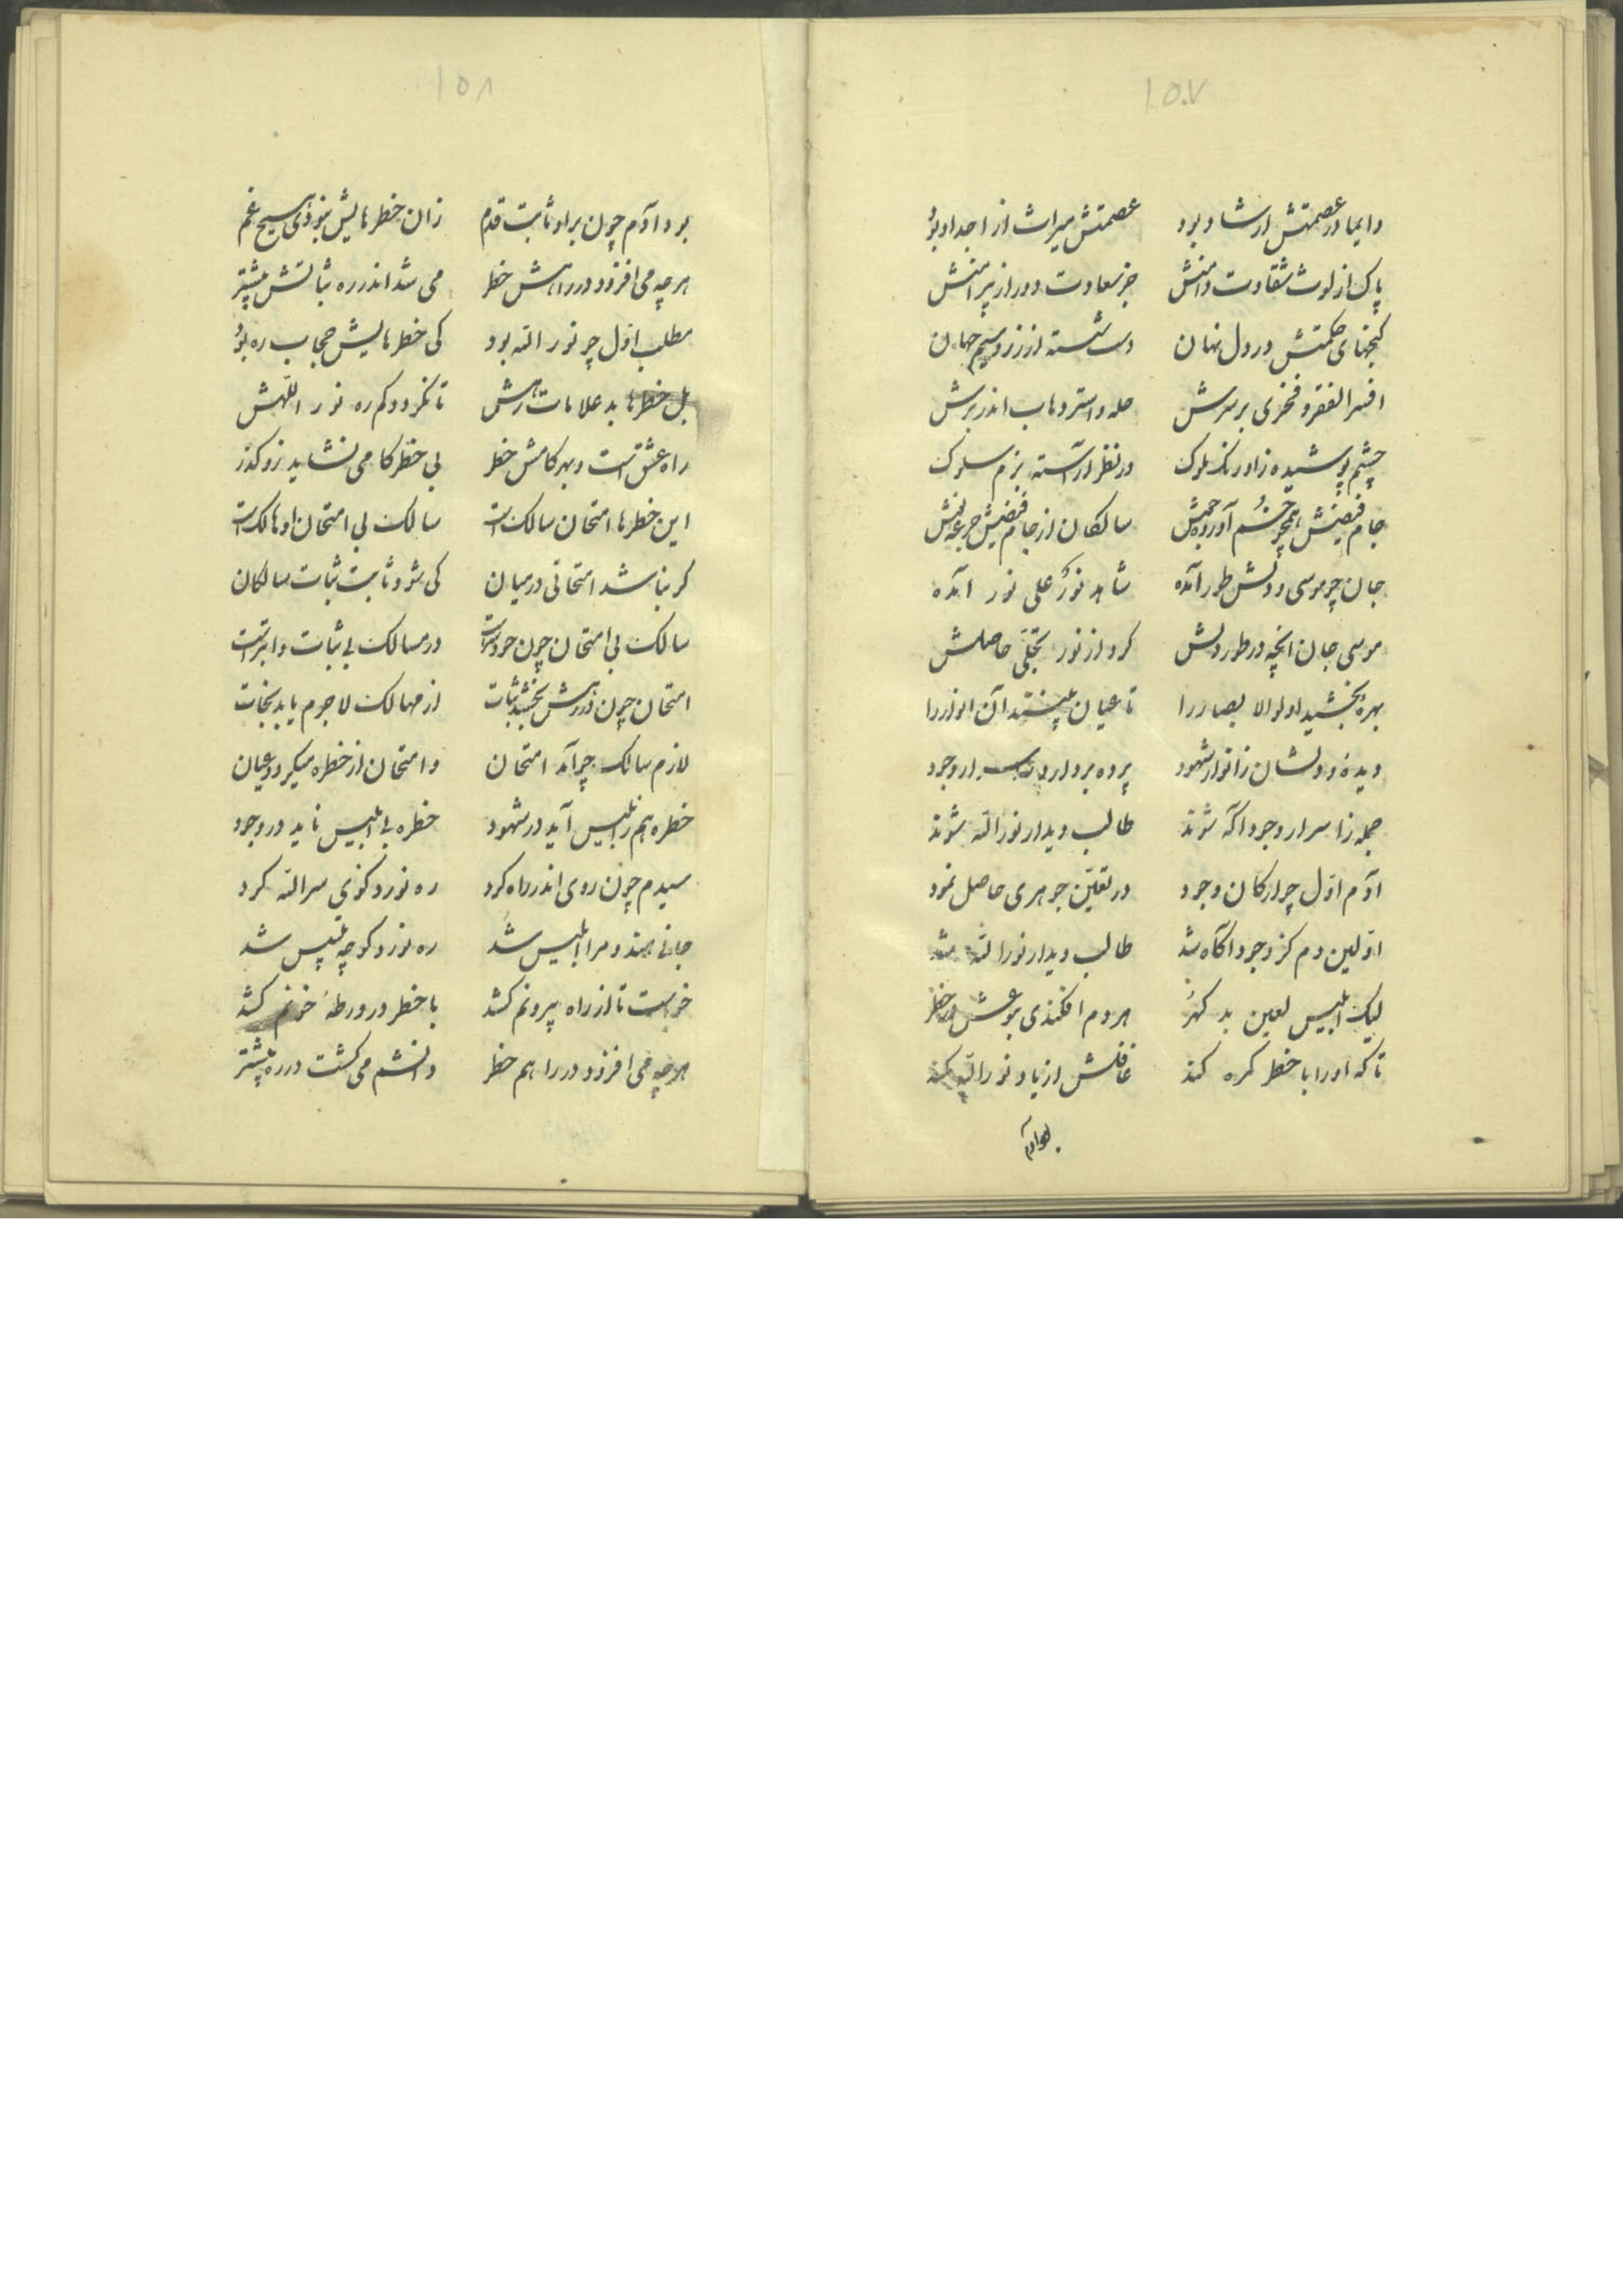 ١٥٧
دایما در عصمتش ارشاد بود عصمتش میراث از اجداد بود
پاک از لوث شقاوت دامنش جز سعادت دور از پیرامنش
کنجهای حکمتش در دل نهان دست شسته از زر و سیم جهان
افسر الفقر و فخری بر سرش حله و استر اندر برش
چشم پوشیده ز اورنک ملوک در نظر آراسته بزم سلوک
جام فیضش همچو خم آورده سالکان از جام فیضش جرعه
جان چو موسی و دلش طور آمده شاهد نور علی نور آمده
موسی جان انچه در طور دلش کرد از نور تجلی حاصلش
بهره بخشید اولوالابصار را تا عیان بینند آن انوار را
دیده و دلشان ز انوار شهود پرده بردارد ز اسرار وجود
جمله ز اسرار وجود اکه شوند طالب دیدار نور الله شوند
آدم اول چو ارکان وجود در تعین جوهری حاصل نمود
اولین دم کز وجود آکاه شد طالب دیدار نور الله شد
لیک ابلیس لعین بد کهر هر دم افکندی بعشق در خطر
تا که او را با خطر کمره کند غافلش از یاد نور الله کند
بود آدم
١٥٨
بود آدم چون براه ثابت قدم زان خطرهایش نبودی هیچ غم
هرچه می افزود در راهش خطر می شد اندر ره ثباتش بیشتر
مطلب اول چو نور الله بود کی خطرهایش حجاب ره بود
بل خطرها بد علامات رهش تا نکردد کم ره نور اللهش
راه عشق است و بهر کامش خطر بی خطر کامی نشاید زو کذر
این خطرها امتحان سالک است سالک بی امتحان او هالک است
کر نباشد امتحانی در میان کی شود ثابت ثبات سالکان
سالک بی امتحان چون در مسالک بی ثبات و ابتر است
امتحان چون در رهش بخشد ثبات از مهالک لاجرم یابد نجات
لازم سالک چو آمد امتحان و امتحان از خطره میکردد عیان
خطره هم ز ابلیس آید در شهود خطره بی ابلیس ناید در وجود
سیدم چون روی اندر راه کرد ره نورد کوی سر الله کرد
جانے هند و مرا ابلیس شد ره نورد کوچه تلبیس شد
خواست تا از راه بیرونم کشد با خطر در ورطهٔ خونم کشد
هرچه می افزود در راهم خطر دانشم می کشت در ره بیشتر